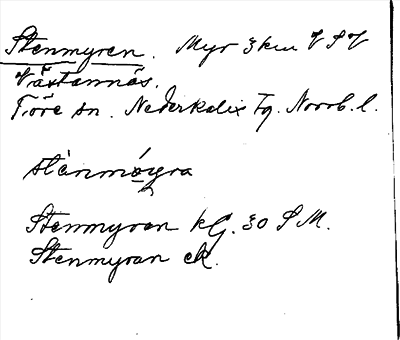 Stenmyren. Myr 3 km V S V
Västannäs.
Töre sn. Nederkalix Tg. Norrb. l.
stènmóyra
Stenmyran kG. 30 S M.
Stenmyran eK.